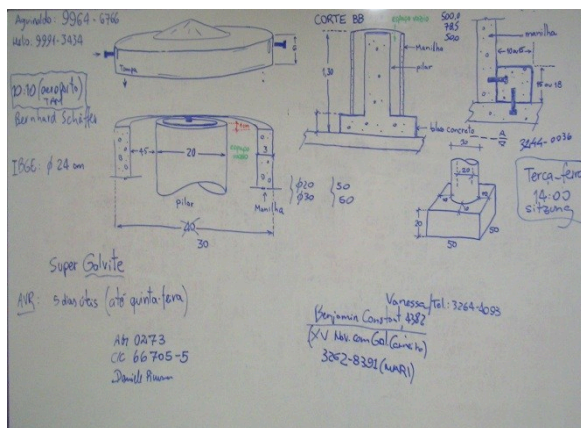 Aguinaldo: 9964-6766
Helo: 9991-3434
Tampa
10:10 (aeroporto)
TAM
Bernhard Schäffer
IBGE: φ 24 cm
45
20
1cm
espaço vazio
3
pilar
Manilha
40
30
φ20
φ30
50
60
CORTE BB
espaço vazio
Manilha
pilar
1,30
bloco concreto
500,0
785
500
manilha
10 ou 15
15 ou 18
A
3244-0036
30
20
20
50
50
Terça-feira
14:00
sitzung
Super Galvite
AVR: 5 dias úteis (até quinta-feira)
Abr 0273
c/c 66705-5
Vanessa/Tel: 3264-4093
Benjamin Constant, 4382
(XV Nov. com Gal. Carneiro)
3262-8391 (MARI)